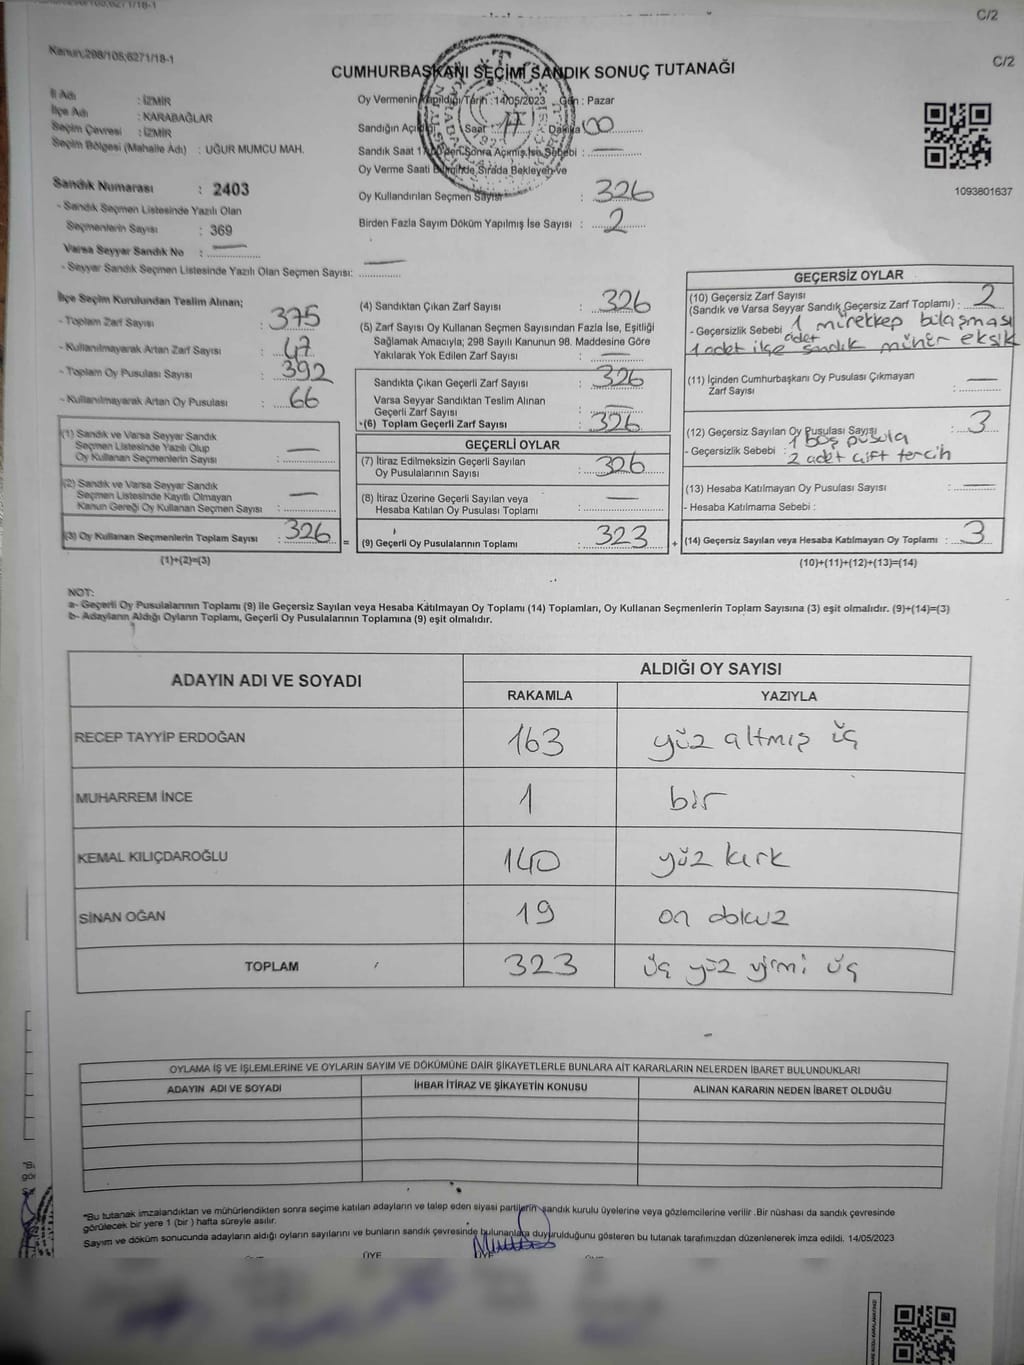 C/2
Kanun:298/105;6271/18-1
C/2
CUMHURBAŞKANI SEÇİMİ SANDIK SONUÇ TUTANAĞI
İl Adı : İZMİR
İlçe Adı : KARABAĞLAR
Seçim Çevresi : İZMİR
Seçim Bölgesi (Mahalle Adı) : UĞUR MUMCU MAH.
Oy Vermenin Yapıldığı Tarih : 14/05/2023 Gün : Pazar
Sandığın Açıldığı Saat : 17 Dakika 00
Sandık Saat 17.00'den Sonra Açılmış İse Sebebi :
Oy Verme Saati Bitiminde Sırada Bekleyen ve
Oy Kullandırılan Seçmen Sayısı : 326
Birden Fazla Sayım Döküm Yapılmış İse Sayısı : 2
1093801637
Sandık Numarası : 2403
- Sandık Seçmen Listesinde Yazılı Olan
Seçmenlerin Sayısı : 369
Varsa Seyyar Sandık No :
- Seyyar Sandık Seçmen Listesinde Yazılı Olan Seçmen Sayısı:
İlçe Seçim Kurulundan Teslim Alınan;
- Toplam Zarf Sayısı : 375
- Kullanılmayarak Artan Zarf Sayısı : 47
- Toplam Oy Pusulası Sayısı : 392
- Kullanılmayarak Artan Oy Pusulası : 66
(1) Sandık ve Varsa Seyyar Sandık
Seçmen Listesinde Yazılı Olup
Oy Kullanan Seçmenlerin Sayısı :
(2) Sandık ve Varsa Seyyar Sandık
Seçmen Listesinde Kayıtlı Olmayan
Kanun Gereği Oy Kullanan Seçmen Sayısı :
(3) Oy Kullanan Seçmenlerin Toplam Sayısı : 326 =
(1)+(2)=(3)
(4) Sandıktan Çıkan Zarf Sayısı : 326
(5) Zarf Sayısı Oy Kullanan Seçmen Sayısından Fazla İse, Eşitliği
Sağlamak Amacıyla; 298 Sayılı Kanunun 98. Maddesine Göre
Yakılarak Yok Edilen Zarf Sayısı :
Sandıkta Çıkan Geçerli Zarf Sayısı : 326
Varsa Seyyar Sandıktan Teslim Alınan
Geçerli Zarf Sayısı :
(6) Toplam Geçerli Zarf Sayısı : 326
GEÇERLİ OYLAR
(7) İtiraz Edilmeksizin Geçerli Sayılan
Oy Pusulalarının Sayısı : 326
(8) İtiraz Üzerine Geçerli Sayılan veya
Hesaba Katılan Oy Pusulası Toplamı :
(9) Geçerli Oy Pusulalarının Toplamı : 323 +
GEÇERSİZ OYLAR
(10) Geçersiz Zarf Sayısı
(Sandık ve Varsa Seyyar Sandık Geçersiz Zarf Toplamı) : 2
- Geçersizlik Sebebi : 1 adet mürekkep bulaşması
1 adet ilçe sandık mühür eksik
(11) İçinden Cumhurbaşkanı Oy Pusulası Çıkmayan
Zarf Sayısı :
(12) Geçersiz Sayılan Oy Pusulası Sayısı : 3
- Geçersizlik Sebebi : 1 boş pusula
2 adet çift tercih
(13) Hesaba Katılmayan Oy Pusulası Sayısı :
- Hesaba Katılmama Sebebi :
(14) Geçersiz Sayılan veya Hesaba Katılmayan Oy Toplamı : 3
(10)+(11)+(12)+(13)=(14)
NOT:
a- Geçerli Oy Pusulalarının Toplamı (9) ile Geçersiz Sayılan veya Hesaba Katılmayan Oy Toplamı (14) Toplamları, Oy Kullanan Seçmenlerin Toplam Sayısına (3) eşit olmalıdır. (9)+(14)=(3)
b- Adayların Aldığı Oyların Toplamı, Geçerli Oy Pusulalarının Toplamına (9) eşit olmalıdır.
ADAYIN ADI VE SOYADI ALDIĞI OY SAYISI
RAKAMLA YAZIYLA
RECEP TAYYİP ERDOĞAN 163 yüz altmış üç
MUHARREM İNCE 1 bir
KEMAL KILIÇDAROĞLU 140 yüz kırk
SİNAN OĞAN 19 on dokuz
TOPLAM 323 üç yüz yirmi üç
OYLAMA İŞ VE İŞLEMLERİNE VE OYLARIN SAYIM VE DÖKÜMÜNE DAİR ŞİKAYETLERLE BUNLARA AİT KARARLARIN NELERDEN İBARET BULUNDUKLARI
ADAYIN ADI VE SOYADI İHBAR İTİRAZ VE ŞİKAYETİN KONUSU ALINAN KARARIN NEDEN İBARET OLDUĞU
"Bu tutanak imzalandıktan ve mühürlendikten sonra seçime katılan adayların ve talep eden siyasi partilerin sandık kurulu üyelerine veya gözlemcilerine verilir .Bir nüshası da sandık çevresinde
görülecek bir yere 1 (bir ) hafta süreyle asılır.
Sayım ve döküm sonucunda adayların aldığı oyların sayılarını ve bunların sandık çevresinde bulunanlara duyurulduğunu gösteren bu tutanak tarafımızdan düzenlenerek imza edildi. 14/05/2023
ÜYE ÜYE